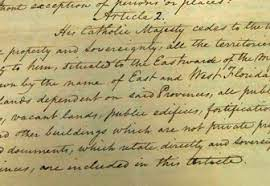 out exception of persons or places.
Article 2.
His Catholic Majesty cedes to the u
property and sovereignty, all the territories
to him, situated to the Eastward of the M
own by the name of East and West Florida
lands dependent on said Provinces, all publ
, vacant lands, public edifices, fortification
nd other buildings which are not private pr
d documents, which relate directly and soverei
inces, are included in this Article.